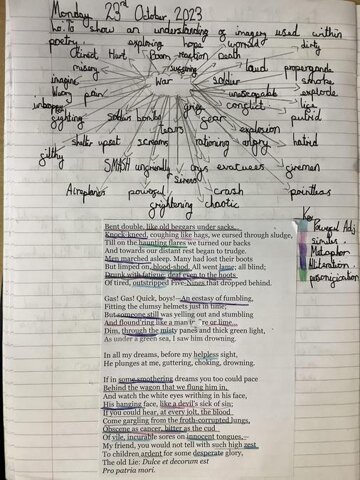 Monday 23rd October, 2023
L.O: To show an understanding of imagery used within
poetry. exploring hope world dirty
direct Hurt Boom reaction Death
misery suffering loud propergande
imagine War soldier smoke
Weary pain unescapable explode
unhappy grief conflict lice
fighting soldus bombs gear putrid
tears explosion
shelter upset screams rationing angry hatred
filthy
SMASH unfriendly evacuees
sirens
Airoplanes powerful crash pointless
frightening chaotic
Key
Powerful Adj
similes
Metaphor
Alliteration
personification
Bent double, like old beggars under sacks,
Knock-kneed, coughing like hags, we cursed through sludge,
Till on the haunting flares we turned our backs
And towards our distant rest began to trudge.
Men marched asleep. Many had lost their boots
But limped on, blood-shod. All went lame; all blind;
Drunk with fatigue; deaf even to the hoots
Of tired, outstripped Five-Nines that dropped behind.
Gas! Gas! Quick, boys!—An ecstasy of fumbling,
Fitting the clumsy helmets just in time;
But someone still was yelling out and stumbling
And flound'ring like a man in fire or lime...
Dim, through the misty panes and thick green light,
As under a green sea, I saw him drowning.
In all my dreams, before my helpless sight,
He plunges at me, guttering, choking, drowning.
If in some smothering dreams you too could pace
Behind the wagon that we flung him in,
And watch the white eyes writhing in his face,
His hanging face, like a devil's sick of sin;
If you could hear, at every jolt, the blood
Come gargling from the froth-corrupted lungs,
Obscene as cancer, bitter as the cud
Of vile, incurable sores on innocent tongues,—
My friend, you would not tell with such high zest
To children ardent for some desperate glory,
The old Lie: Dulce et decorum est
Pro patria mori.